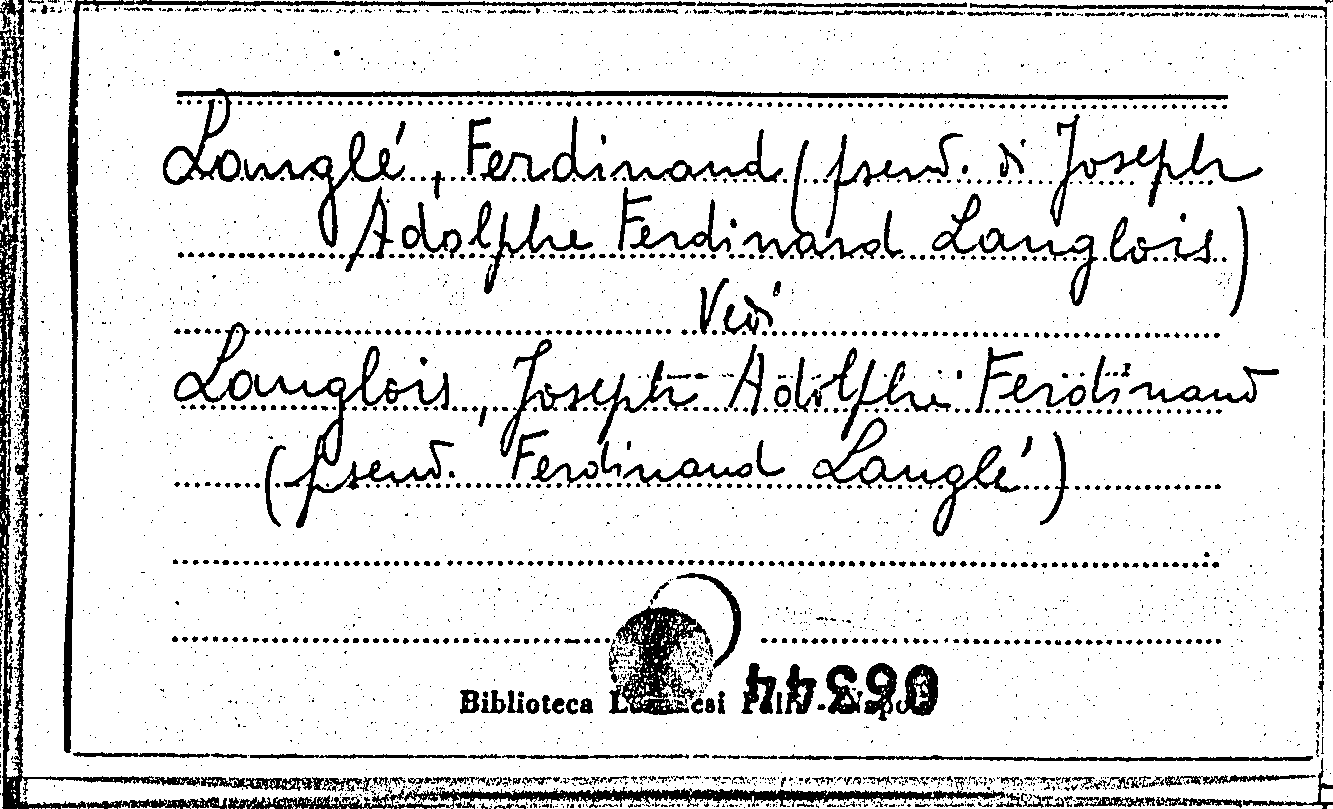 Langlé, Ferdinand (pseud. di Joseph
Adolphe Ferdinand Langlois)
Vedi
Langlois, Joseph Adolphe Ferdinand
(pseud. Ferdinand Langlé)
Biblioteca